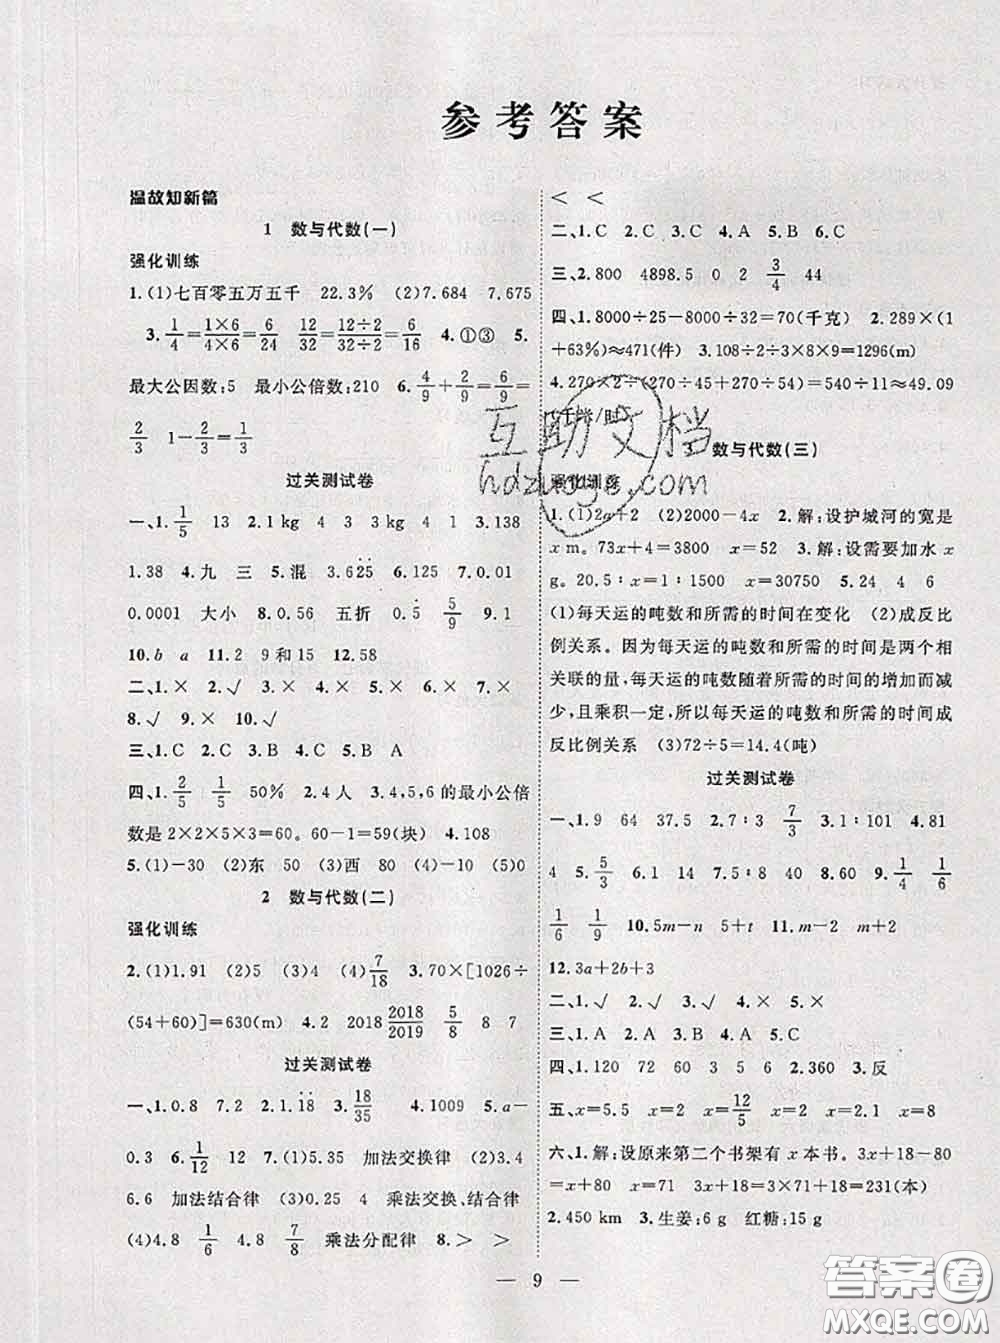 参考答案
温故知新篇
1 数与代数(一)
强化训练
1.(1)七百零五万五千 22.3% (2)7.684 7.675
3. 1/4=(1×6)/(4×6)=6/24 12/32=(12÷2)/(32÷2)=6/16 4.①③ 5.
最大公因数:5 最小公倍数:210 6. 4/9+2/9=6/9=
2/3 1-2/3=1/3
过关测试卷
一、1. 1/5 13 2.1 kg 4 3 4 1 3.138
1.38 4.九 三 5.混 3.6̇25̇ 6.125 7.0.01
0.0001 大小 8.0.56 五折 0.5̇ 5/9 9.1
10.b a 11.2 9和15 12.58
二、1.× 2.√ 3.× 4.× 5.× 6.× 7.×
8.√ 9.× 10.√
三、1.C 2.C 3.C 4.C 5.B A
四、1. 2/5 1/5 50% 2.4人 3.4,5,6的最小公倍
数是2×2×5×3=60。60-1=59(块) 4.108
5.(1)-30 (2)东 50 (3)西 80 (4)-10 (5)0
2 数与代数(二)
强化训练
2.(1)1.91 (2)5 (3)4 (4) 7/18 3.70×[1026÷
(54+60)]=630(m) 4.2 2018 2018/2019 5/8 8 7
过关测试卷
一、1.0.8 7.2 2.1.1̇8̇ 3. 18/35 4.1009 5.a-
0.3 6. 1/12 12 7.(1)5.35 加法交换律 (2)3.4
6.6 加法结合律 (3)0.25 4 乘法交换、结合律
(4)4.8 1/6 4.8 7/8 乘法分配律 8.> >
< <
二、1.C 2.C 3.C 4.A 5.B 6.C
三、2.800 4898.5 0 2 3/4 44
四、1.8000÷25-8000÷32=70(千克) 2.289×(1
+63%)≈471(件) 3.108÷2÷3×8×9=1296(m)
4.270×2÷(270÷45+270÷54)=540÷11≈49.09
千米/时
数与代数(三)
强化训练
1.(1)2a+2 (2)2000-4x 2.解:设护城河的宽是
x m。73x+4=3800 x=52 3.解:设需要加水 x
g。20.5∶x=1∶1500 x=30750 5.24 4 6
(1)每天运的吨数和所需的时间在变化 (2)成反比
例关系。因为每天运的吨数和所需的时间是两个相
关联的量,每天运的吨数随着所需的时间的增加而减
少,且乘积一定,所以每天运的吨数和所需的时间成
反比例关系 (3)72÷5=14.4(吨)
过关测试卷
一、1.9 64 37.5 2.7∶3 7/3 3.1∶101 4.81
4 5. 5/3 6.13 14 7.5∶8 40 8.60 9. 1/4 1/6
1/6 1/9 10.5m-n 5+t 11.m-2 m+2
12.3a+2b+3
二、1.√ 2.√ 3.√ 4.× 5.×
三、1.A 2.A 3.B 4.A 5.C
四、1.120 72 60 3 5 6 2.360 3.反
五、x=5.5 x=2 x=12/5 x=2 x=2 x=8
六、1.解:设原来第二个书架有x本书。3x+18-80
=x+65 x=
3x+18=3×
+18=231(本)
2.450 km 3.生姜:6 g 红糖:15 g
9
互助文档
hdzuoye.com
答案圈
MXQE.COM